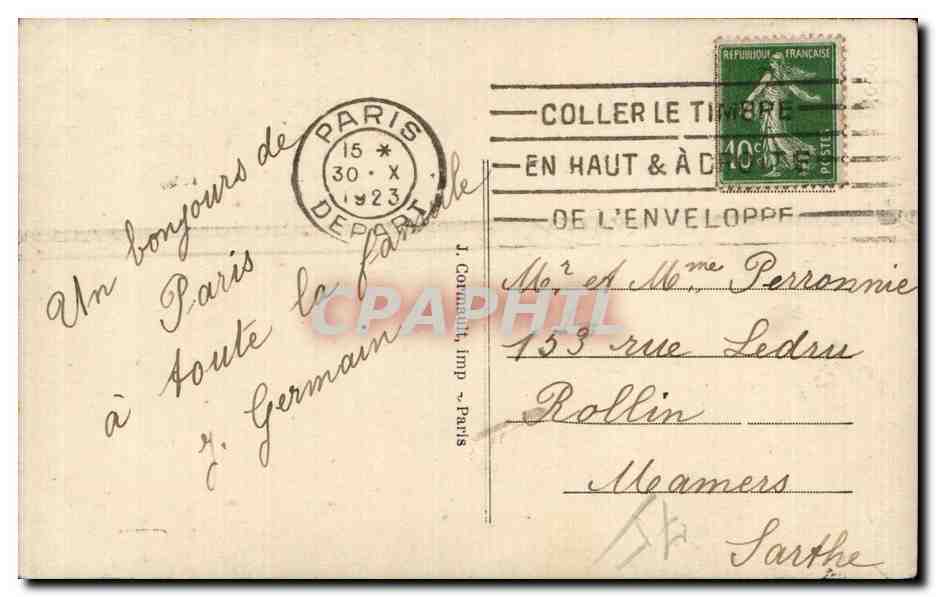 Un bonjours de
Paris
à toute la famille
J. Germain
PARIS
15 *
30 · X
1923
DEPART
COLLER LE TIMBRE
EN HAUT & À DROITE
DE L'ENVELOPPE
REPUBLIQUE FRANÇAISE
10c
POSTES
J. Cormault, imp ~ Paris
CPAPHIL
Mr et Mme Perronnie
153 rue Ledru
Rollin
Mamers
Sarthe